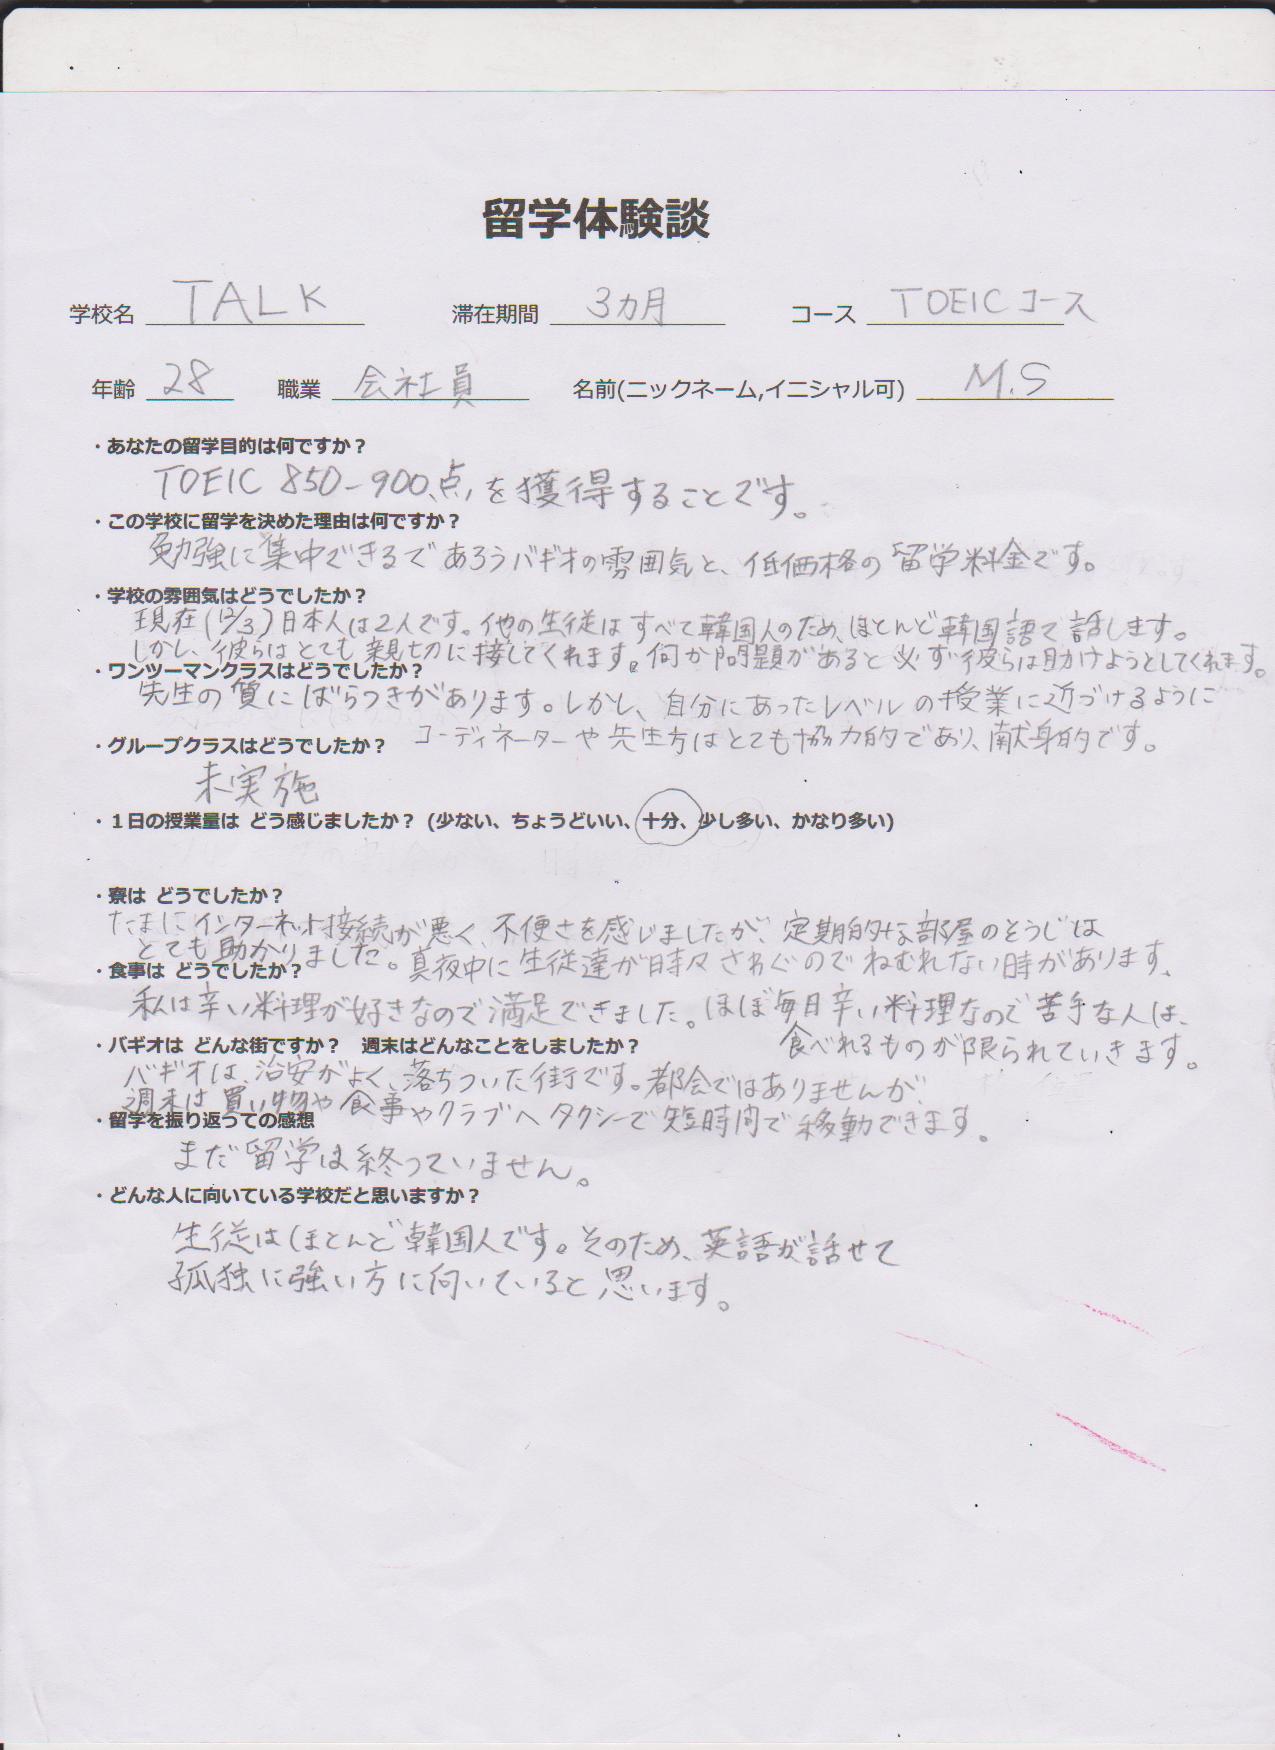 留学体験談
学校名 TALK 滞在期間 3カ月 コース TOEICコース
年齢 28 職業 会社員 名前(ニックネーム,イニシャル可) M.S
・あなたの留学目的は何ですか？
TOEIC 850-900点を獲得することです。
・この学校に留学を決めた理由は何ですか？
勉強に集中できるであろうバギオの雰囲気と、低価格の留学料金です。
・学校の雰囲気はどうでしたか？
現在(12/3)日本人は2人です。他の生徒はすべて韓国人のため、ほとんど韓国語で話します。
しかし、彼らはとても親切に接してくれます。何か問題があると必ず彼らは助けようとしてくれます。
・ワンツーマンクラスはどうでしたか？
先生の質にばらつきがあります。しかし、自分にあったレベルの授業に近づけるように
・グループクラスはどうでしたか？ コーディネーターや先生方はとても協力的であり、献身的です。
未実施
・１日の授業量は どう感じましたか？ (少ない、ちょうどいい、十分、少し多い、かなり多い)
・寮は どうでしたか？
たまにインターネット接続が悪く、不便さを感じましたが、定期的な部屋のそうじは
とても助かりました。真夜中に生徒達が時々さわぐのでねむれない時があります、
・食事は どうでしたか？
私は辛い料理が好きなので満足できました。ほぼ毎日辛い料理なので苦手な人は、
・バギオは どんな街ですか？ 週末はどんなことをしましたか？ 食べれるものが限られていきます。
バギオは、治安がよく、落ちついた街です。都会ではありませんが、
週末は買い物や食事やクラブへタクシーで短時間で移動できます。
・留学を振り返っての感想
まだ留学は終っていません。
・どんな人に向いている学校だと思いますか？
生徒はほとんど韓国人です。そのため、英語が話せて
孤独に強い方に向いていると思います。